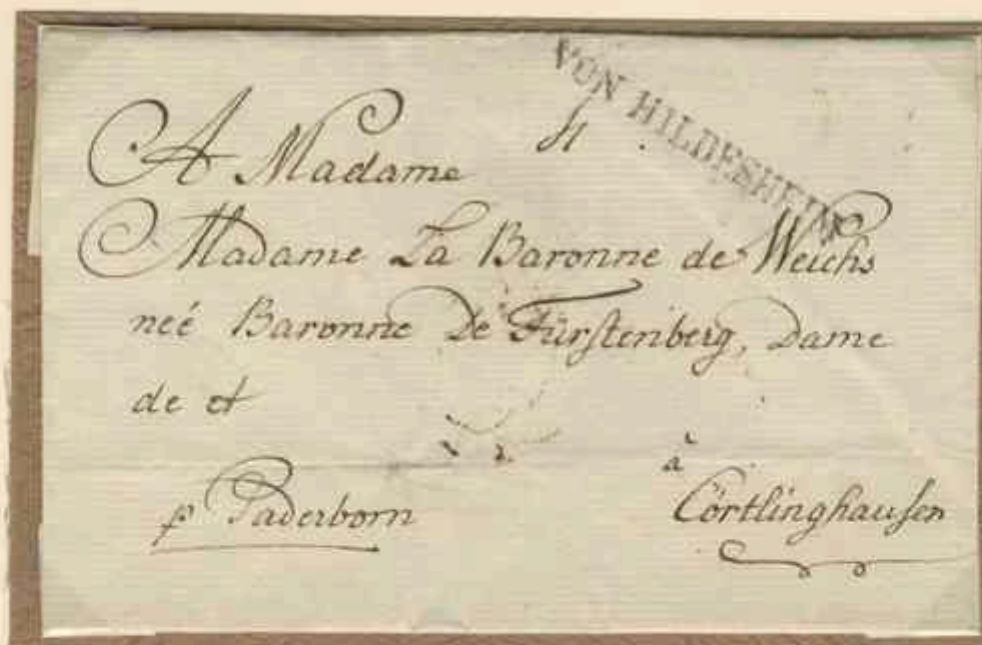 VON HILDESHEIM
4
A Madame
Madame La Baronne de Weichs
neé Baronne De Fürstenberg, Dame
de et
à
p Paderborn
Cörtlinghausen